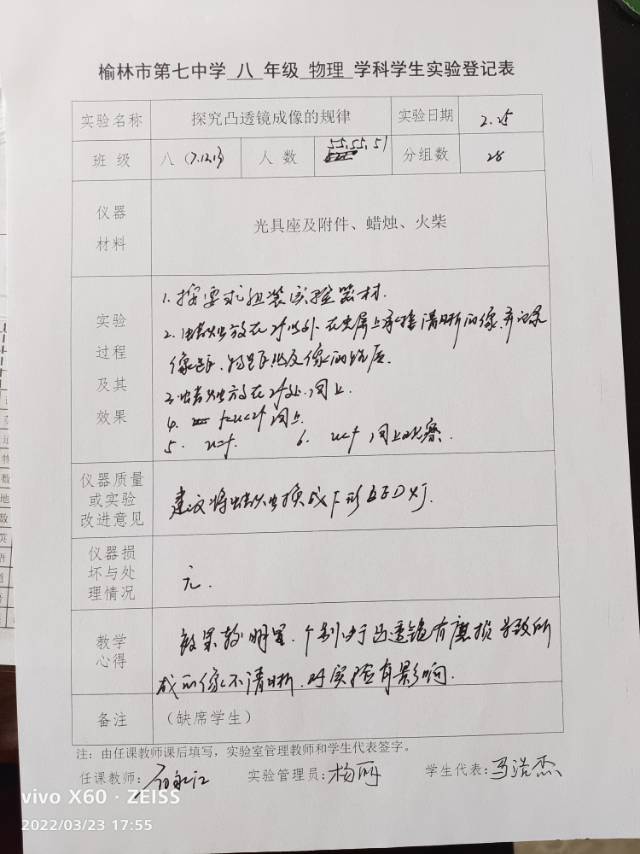 榆林市第七中学 八 年级 物理 学科学生实验登记表
实验名称 探究凸透镜成像的规律 实验日期 2.25
班级 八(7.12.13) 人数 55.55.51 分组数 28
仪器材料 光具座及附件、蜡烛、火柴
实验过程及其效果
1.按要求组装实验器材.
2.蜡烛放在2f以外.在光屏上承接清晰的像.并记录
像距、物距以及像的性质.
3.蜡烛放在2f处.同上.
4. f<u<2f 同上.
5. u=f. 6. u<f 同上观察.
仪器质量或实验改进意见 建议将蜡烛换成F形LED灯.
仪器损坏与处理情况 无.
教学心得 效果较明显.个别由于凸透镜有磨损导致所
成的像不清晰.对实验有影响.
备注 (缺席学生)
注:由任课教师课后填写,实验室管理教师和学生代表签字。
任课教师: 实验管理员:杨丽 学生代表:马浩杰
vivo X60 · ZEISS
2022/03/23 17:55